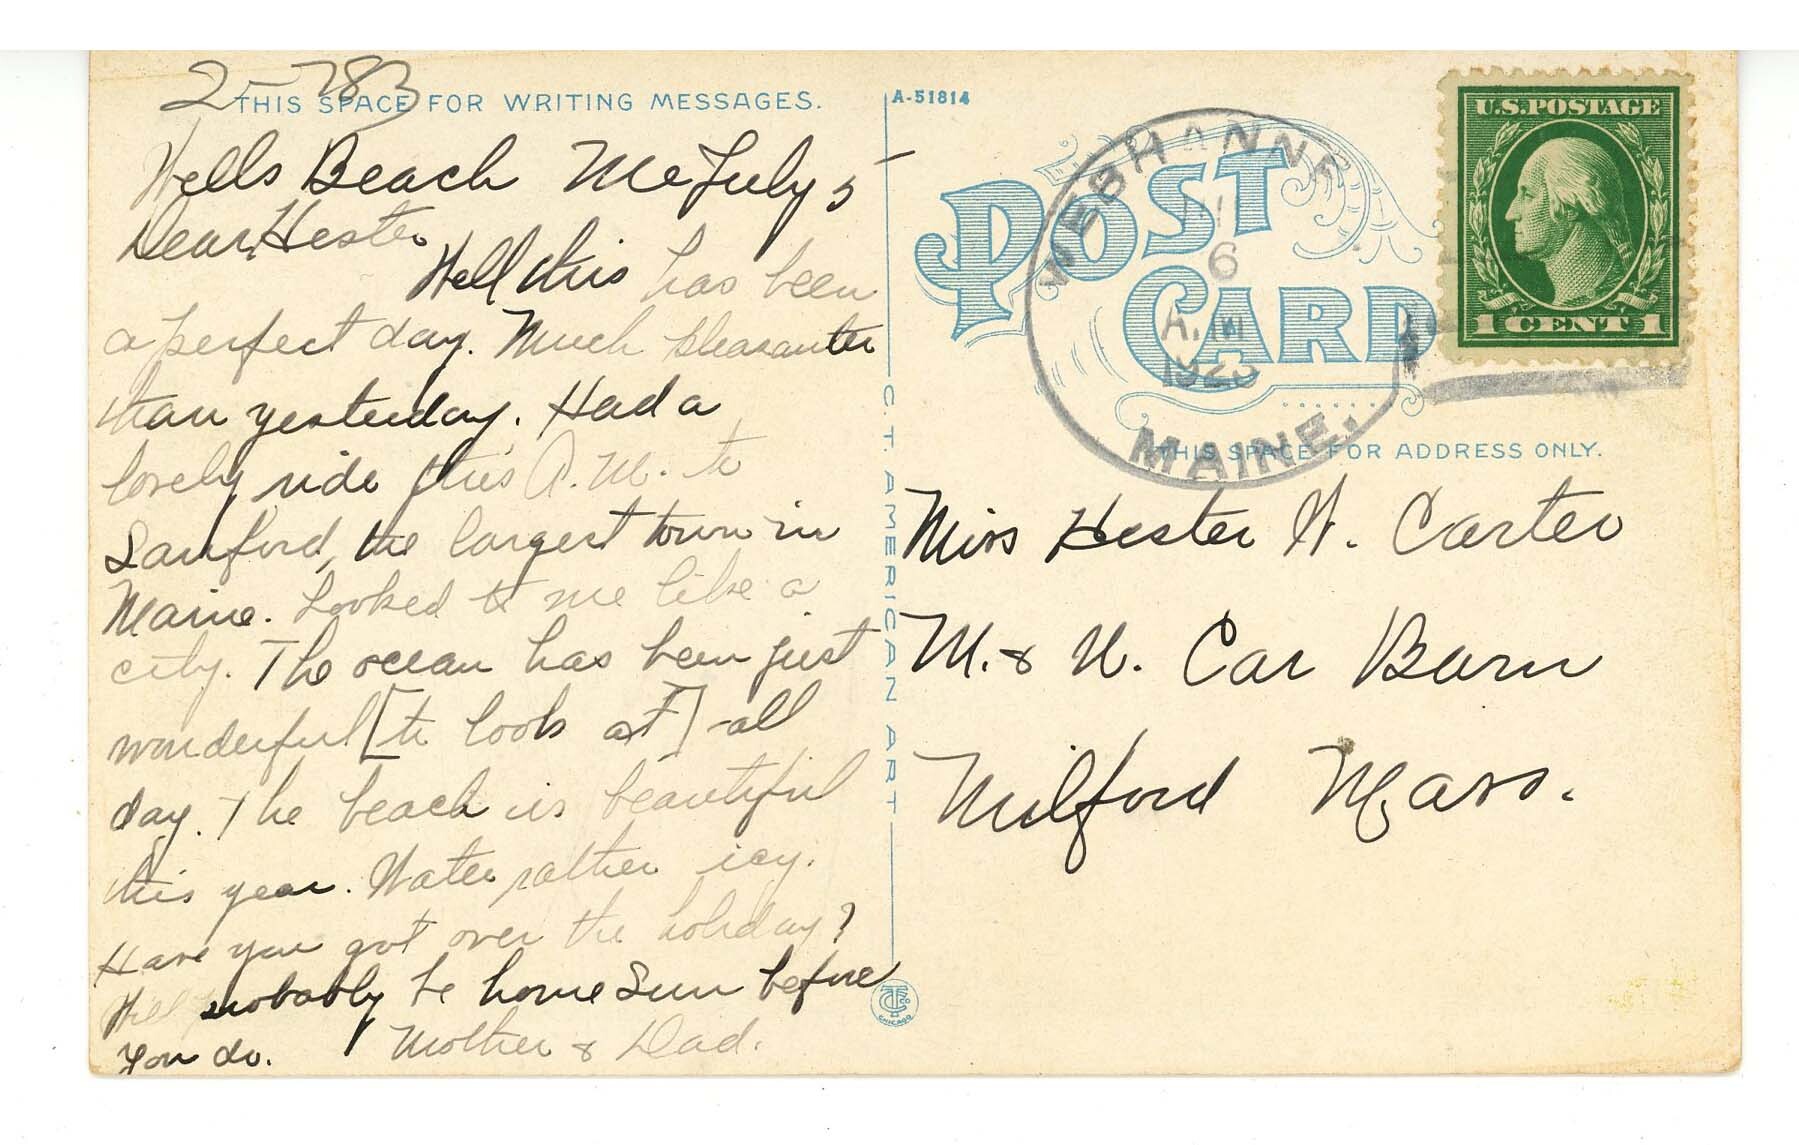 2-783
THIS SPACE FOR WRITING MESSAGES.
Wells Beach Me July 5
Dear Hester
Well this has been
a perfect day. Much pleasanter
than yesterday. Had a
lovely ride this A.M. to
Sanford, the largest town in
Maine. Looked to me like a
city. The ocean has been just
wonderful [to look at] - all
day. The beach is beautiful
this year. Water rather icy.
Have you got over the holiday?
Will probably be home Sun before
you do. Mother & Dad.
A-51814
C.T. AMERICAN ART
CHICAGO
POST
CARD
WEBHANNET
6
A.M
1923
MAINE.
U.S. POSTAGE
1 CENT 1
THIS SPACE FOR ADDRESS ONLY.
Miss Hester W. Carter
M. & U. Car Barn
Milford Mass.